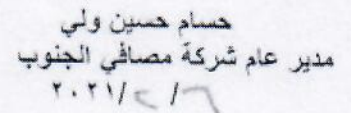 حسام حسين ولي
مدير عام شركة مصافي الجنوب
٢٠٢١/٢/٦